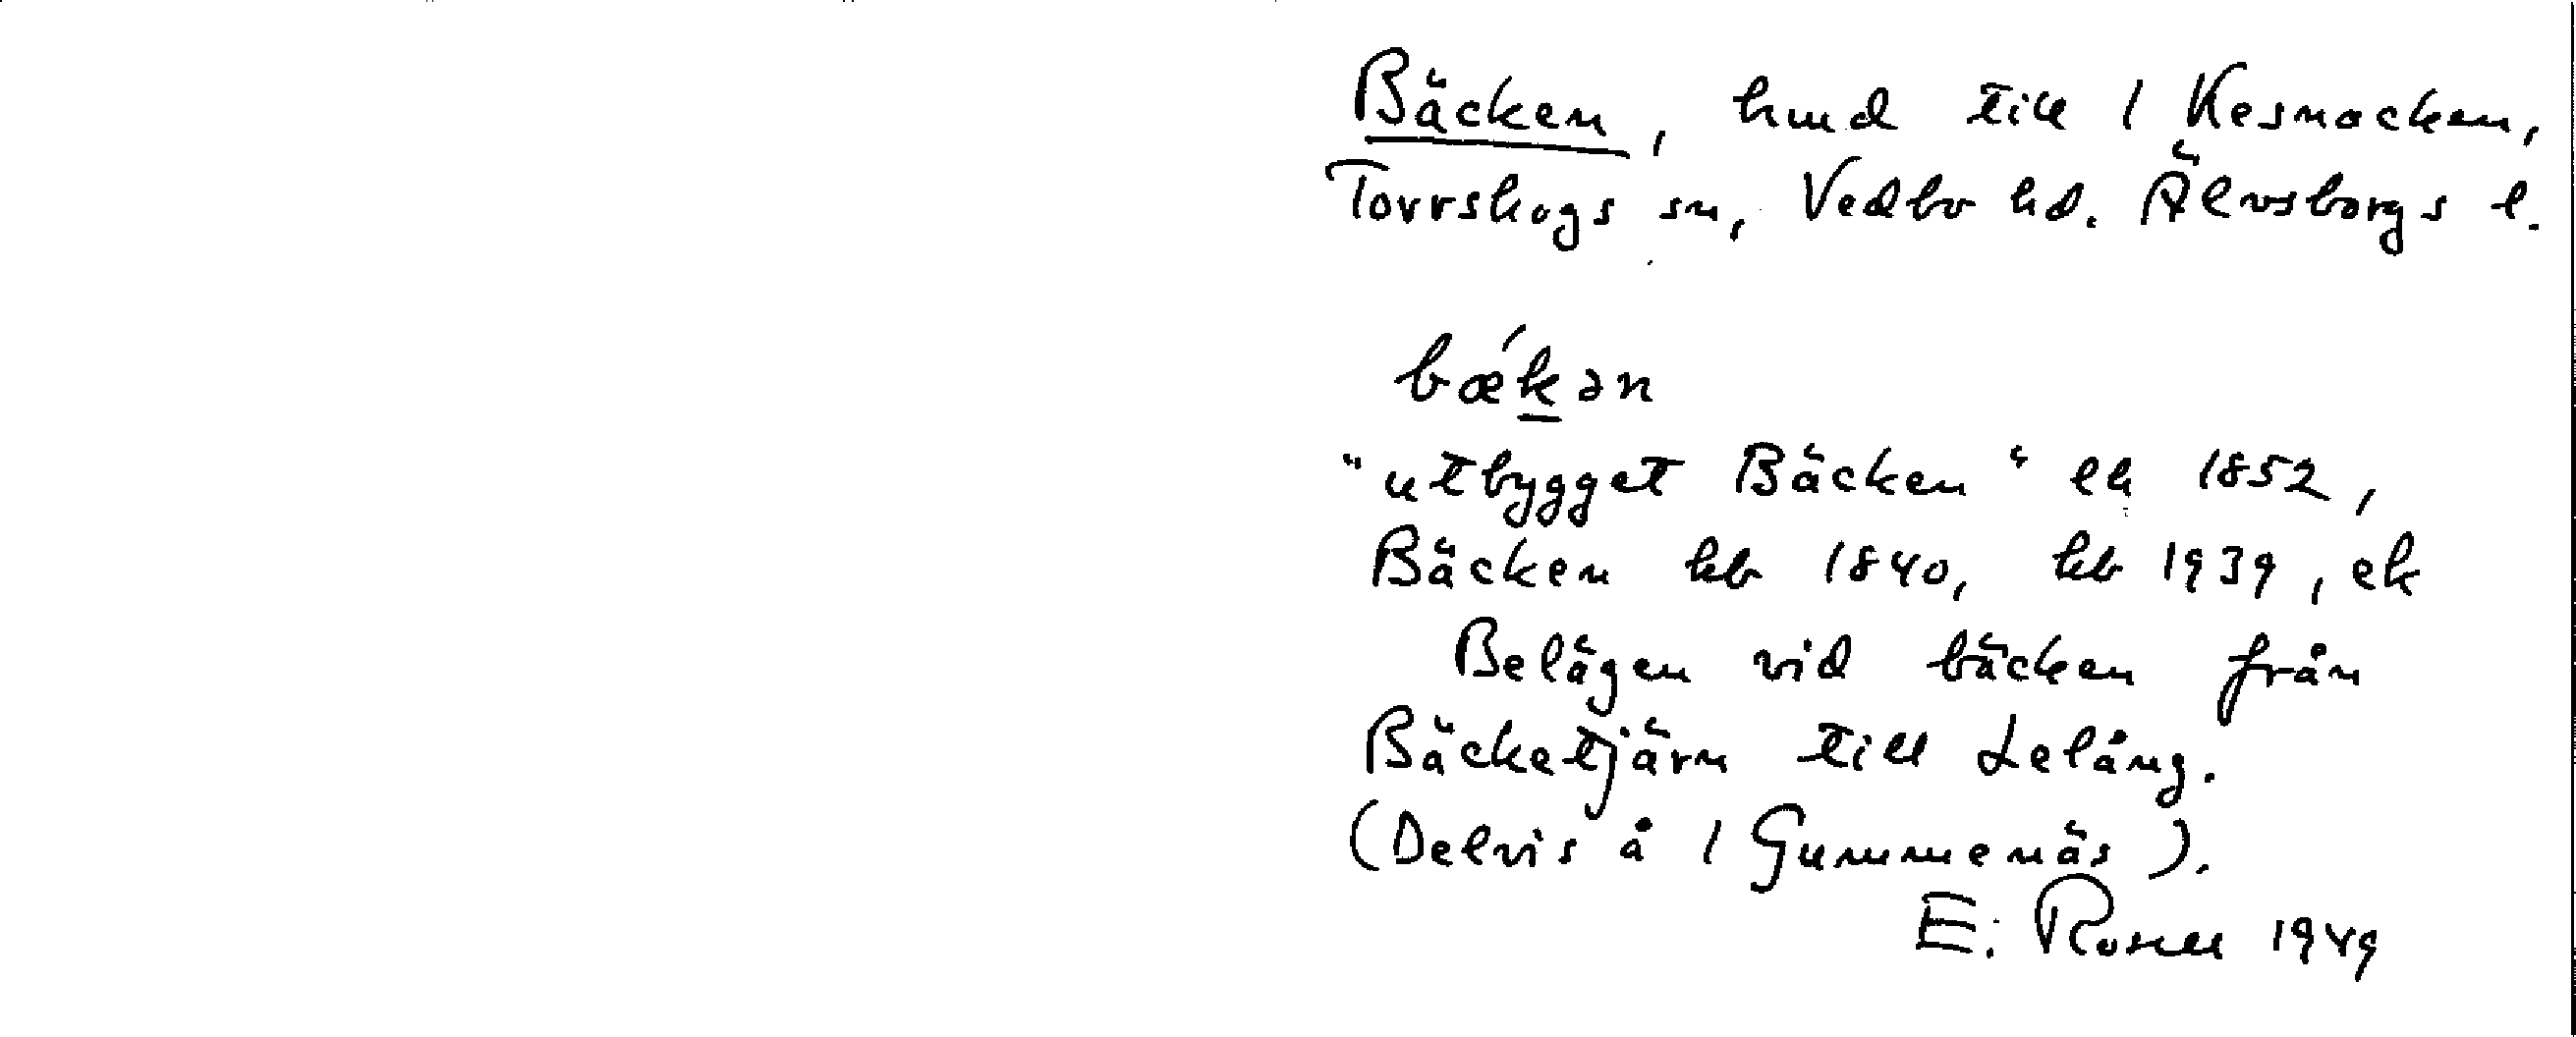 Bäcken, hmd till 1 Kesnacken,
Torrskogs sn, Vedbo hd. Älvsborgs l.
bǽkən
"utbygget Bäcken" lh 1852,
Bäcken kb 1840, kb 1939, ek
Belägen vid bäcken från
Bäcketjärn till Lelång.
(Delvis å 1 Gummenäs).
E. Rosell 1949